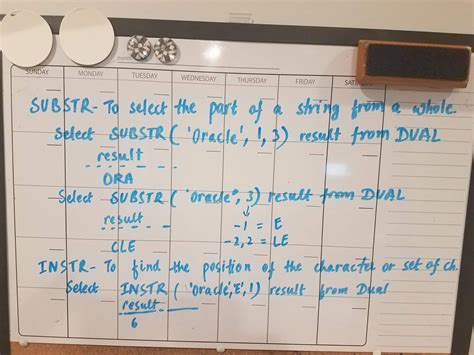 SUNDAY MONDAY TUESDAY WEDNESDAY THURSDAY FRIDAY
SUBSTR- To select the part of a string from a whole.
Select SUBSTR( 'Oracle', 1, 3) result from DUAL
result
ORA
Select SUBSTR( 'Oracle', 3) result from DUAL
result
-1 = E
CLE
-2,2 = LE
INSTR- To find the position of the character or set of ch.
Select INSTR ( 'Oracle','E',1) result from Dual
result
6